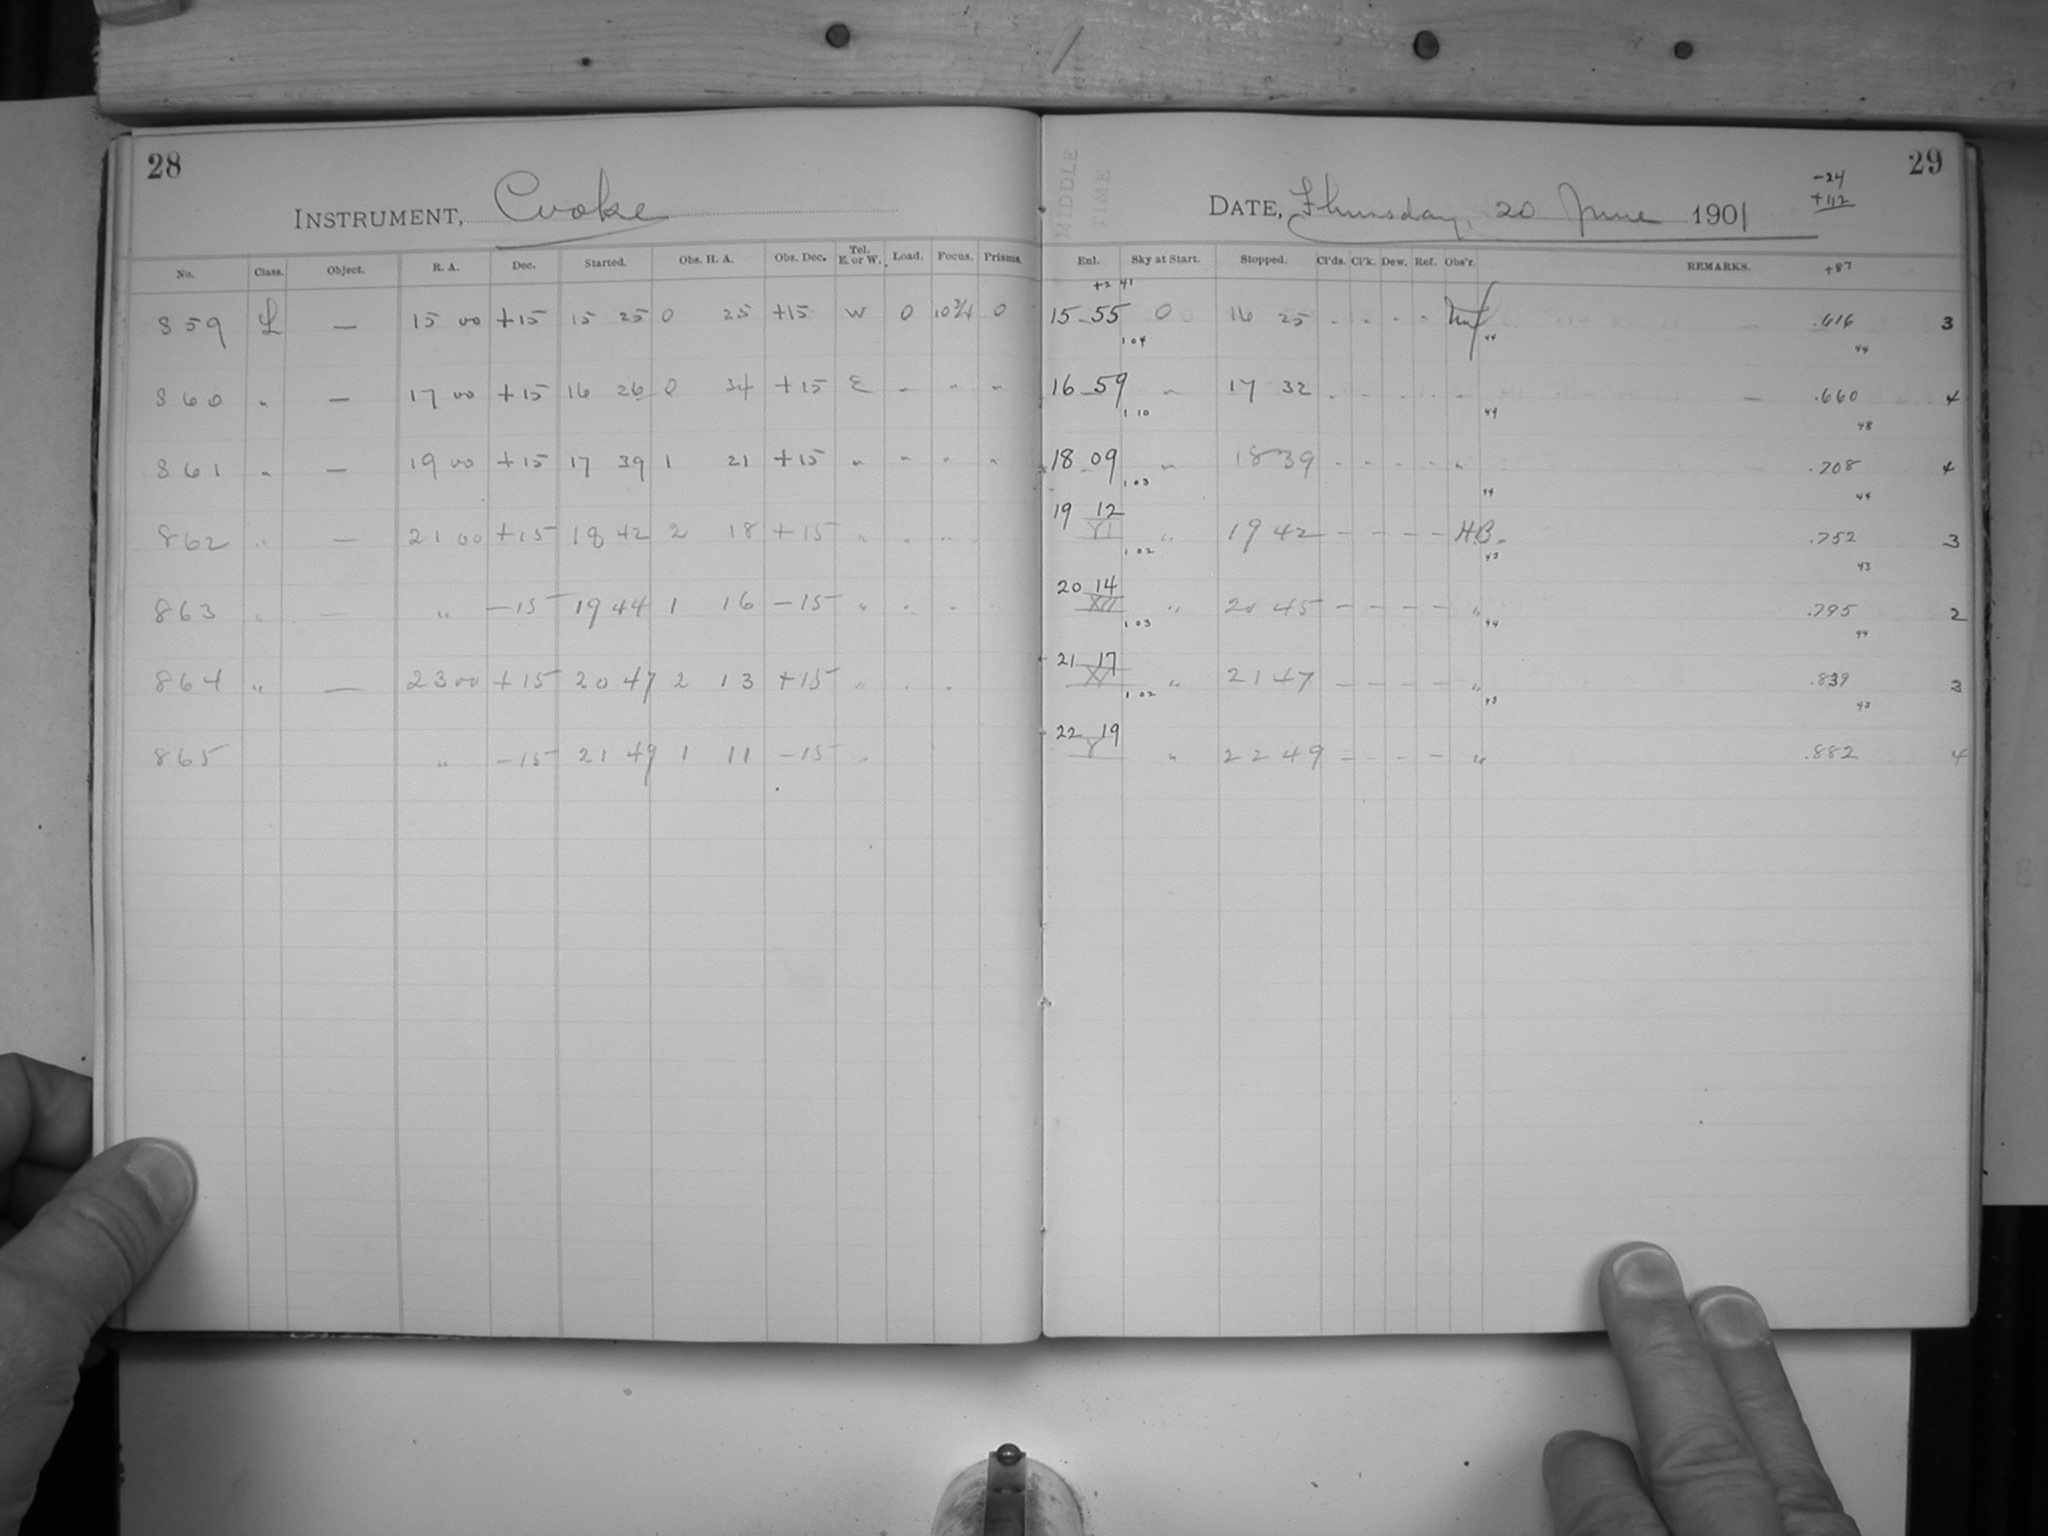 28
INSTRUMENT, Cooke
No. Class. Object. R. A. Dec. Started. Obs. H. A. Obs. Dec. Tel. E. or W. Load. Focus. Prisms.
859 L — 15 00 +15 15 25 0 25 +15 W 0 10 3/4 0
860 " — 17 00 +15 16 26 0 34 +15 E " " "
861 " — 19 00 +15 17 39 1 21 +15 " " " "
862 " — 21 00 +15 18 42 2 18 +15 " " "
863 " — " -15 19 44 1 16 -15 " " "
864 " — 23 00 +15 20 47 2 13 +15 " " "
865 " -15 21 49 1 11 -15 "
29
MIDDLE TIME
DATE, Thursday, 20 June 1901
-24
+112
+87
Enl. Sky at Start. Stopped. Cl'ds. Cl'k. Dew. Ref. Obs'r. REMARKS.
+2 41
15 55 0 16 25 - - - - .616 3
1 04 44 44
16 59 " 17 32 - - - - " — .660 4
1 10 49 48
18 09 " 18 39 - - - - " .708 4
1 03 44 44
19 12 " 19 42 - - - - H.B. .752 3
VI
1 02 43 43
20 14 " 20 45 - - - - " .795 2
XII
1 03 44 44
21 17 " 21 47 - - - - " .839 3
1 02 43 43
22 19 " 22 49 - - - - " .882 4